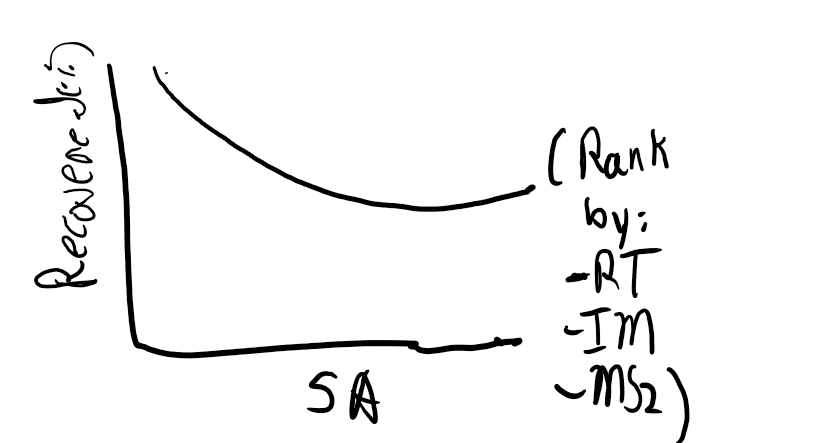 Recovered (%)
(Rank
by:
-RT
-IM
-MS2)
SA